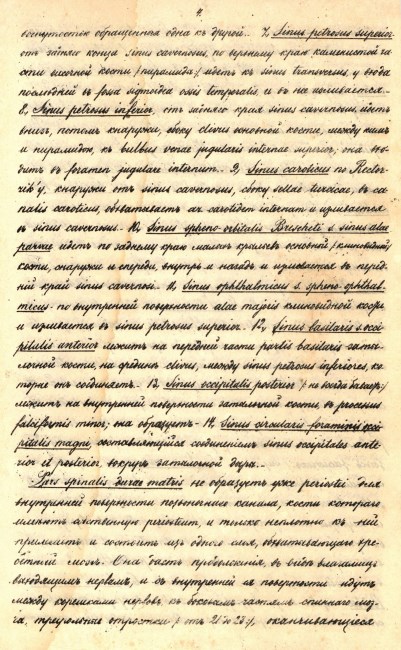 4.
обращенныя одна къ другой. 7, Sinus petrosus superior
отъ задняго конца sinus cavernosus, по верхнему краю каменистой ча-
сти височной кости /пирамида/; идетъ къ sinus transversus, у входа
послѣдней въ fossa sigmoidea ossis temporalis и въ не изливается.
8, Sinus petrosus inferior, отъ задняго края sinus cavernosus идетъ
внизъ, потомъ кнаружи, сбоку clivus основной кости, между нимъ
и пирамидою, къ bulbus venae jugularis internae superior; она
въ foramen jugulare internum. 9, Sinus caroticus по
кнаружи отъ sinus cavernosus, сбоку sellae turcicae, въ ca-
nalis caroticus, обхватываетъ art. carotidem internam и изливается
въ sinus cavernosus. 10, Sinus spheno-orbitalis Brescheti s. sinus alae
parvae идетъ по заднему краю малыхъ крыльевъ основной /клиновидной/
кости, снаружи и спереди, внутрь и назадъ и изливается въ перед-
ній край sinus cavernosi. 11, Sinus ophthalmicus s. spheno-ophthal-
micus - по внутренней поверхности alae majoris клиновидной кости
и изливается въ sinus petrosus superior. 12, Sinus basilaris s. occi-
pitalis anterior лежитъ на передней части partis basilaris заты-
лочной кости, на clivus, между sinus petrosus inferiores, ко-
торые онъ соединяетъ. 13, Sinus occipitalis posterior /не всегда бываетъ/;
лежитъ на внутренней поверхности затылочной кости, въ processus
falciformis minor; она образуетъ - 14, Sinus circularis foraminis occi-
pitalis magni, составляющійся соединеніемъ sinus occipitales ante-
rior et posterior вокругъ затылочной дыры.
Pars spinalis durae matris не образуетъ уже periostei для
внутренней поверхности позвоночнаго канала, кости котораго
имѣютъ собственную periosteum, и только неплотно къ ней
прилегаетъ и состоитъ изъ одного слоя, обхватывающаго хре-
бетный мозгъ. Она даетъ продолженія, въ видѣ влагалищъ
выходящимъ нервамъ, и съ внутренней ея поверхности идутъ
между корешками нервовъ къ боковымъ частямъ спиннаго моз-
га, треугольные отростки /отъ 21 до 23/, оканчивающіеся